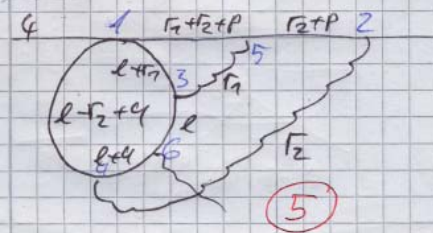 4 1 r₁+r₂+p r₂+p 2
5
l+r₁ 3 r₁
l-r₂+4 l
l+4 6 r₂
4
5